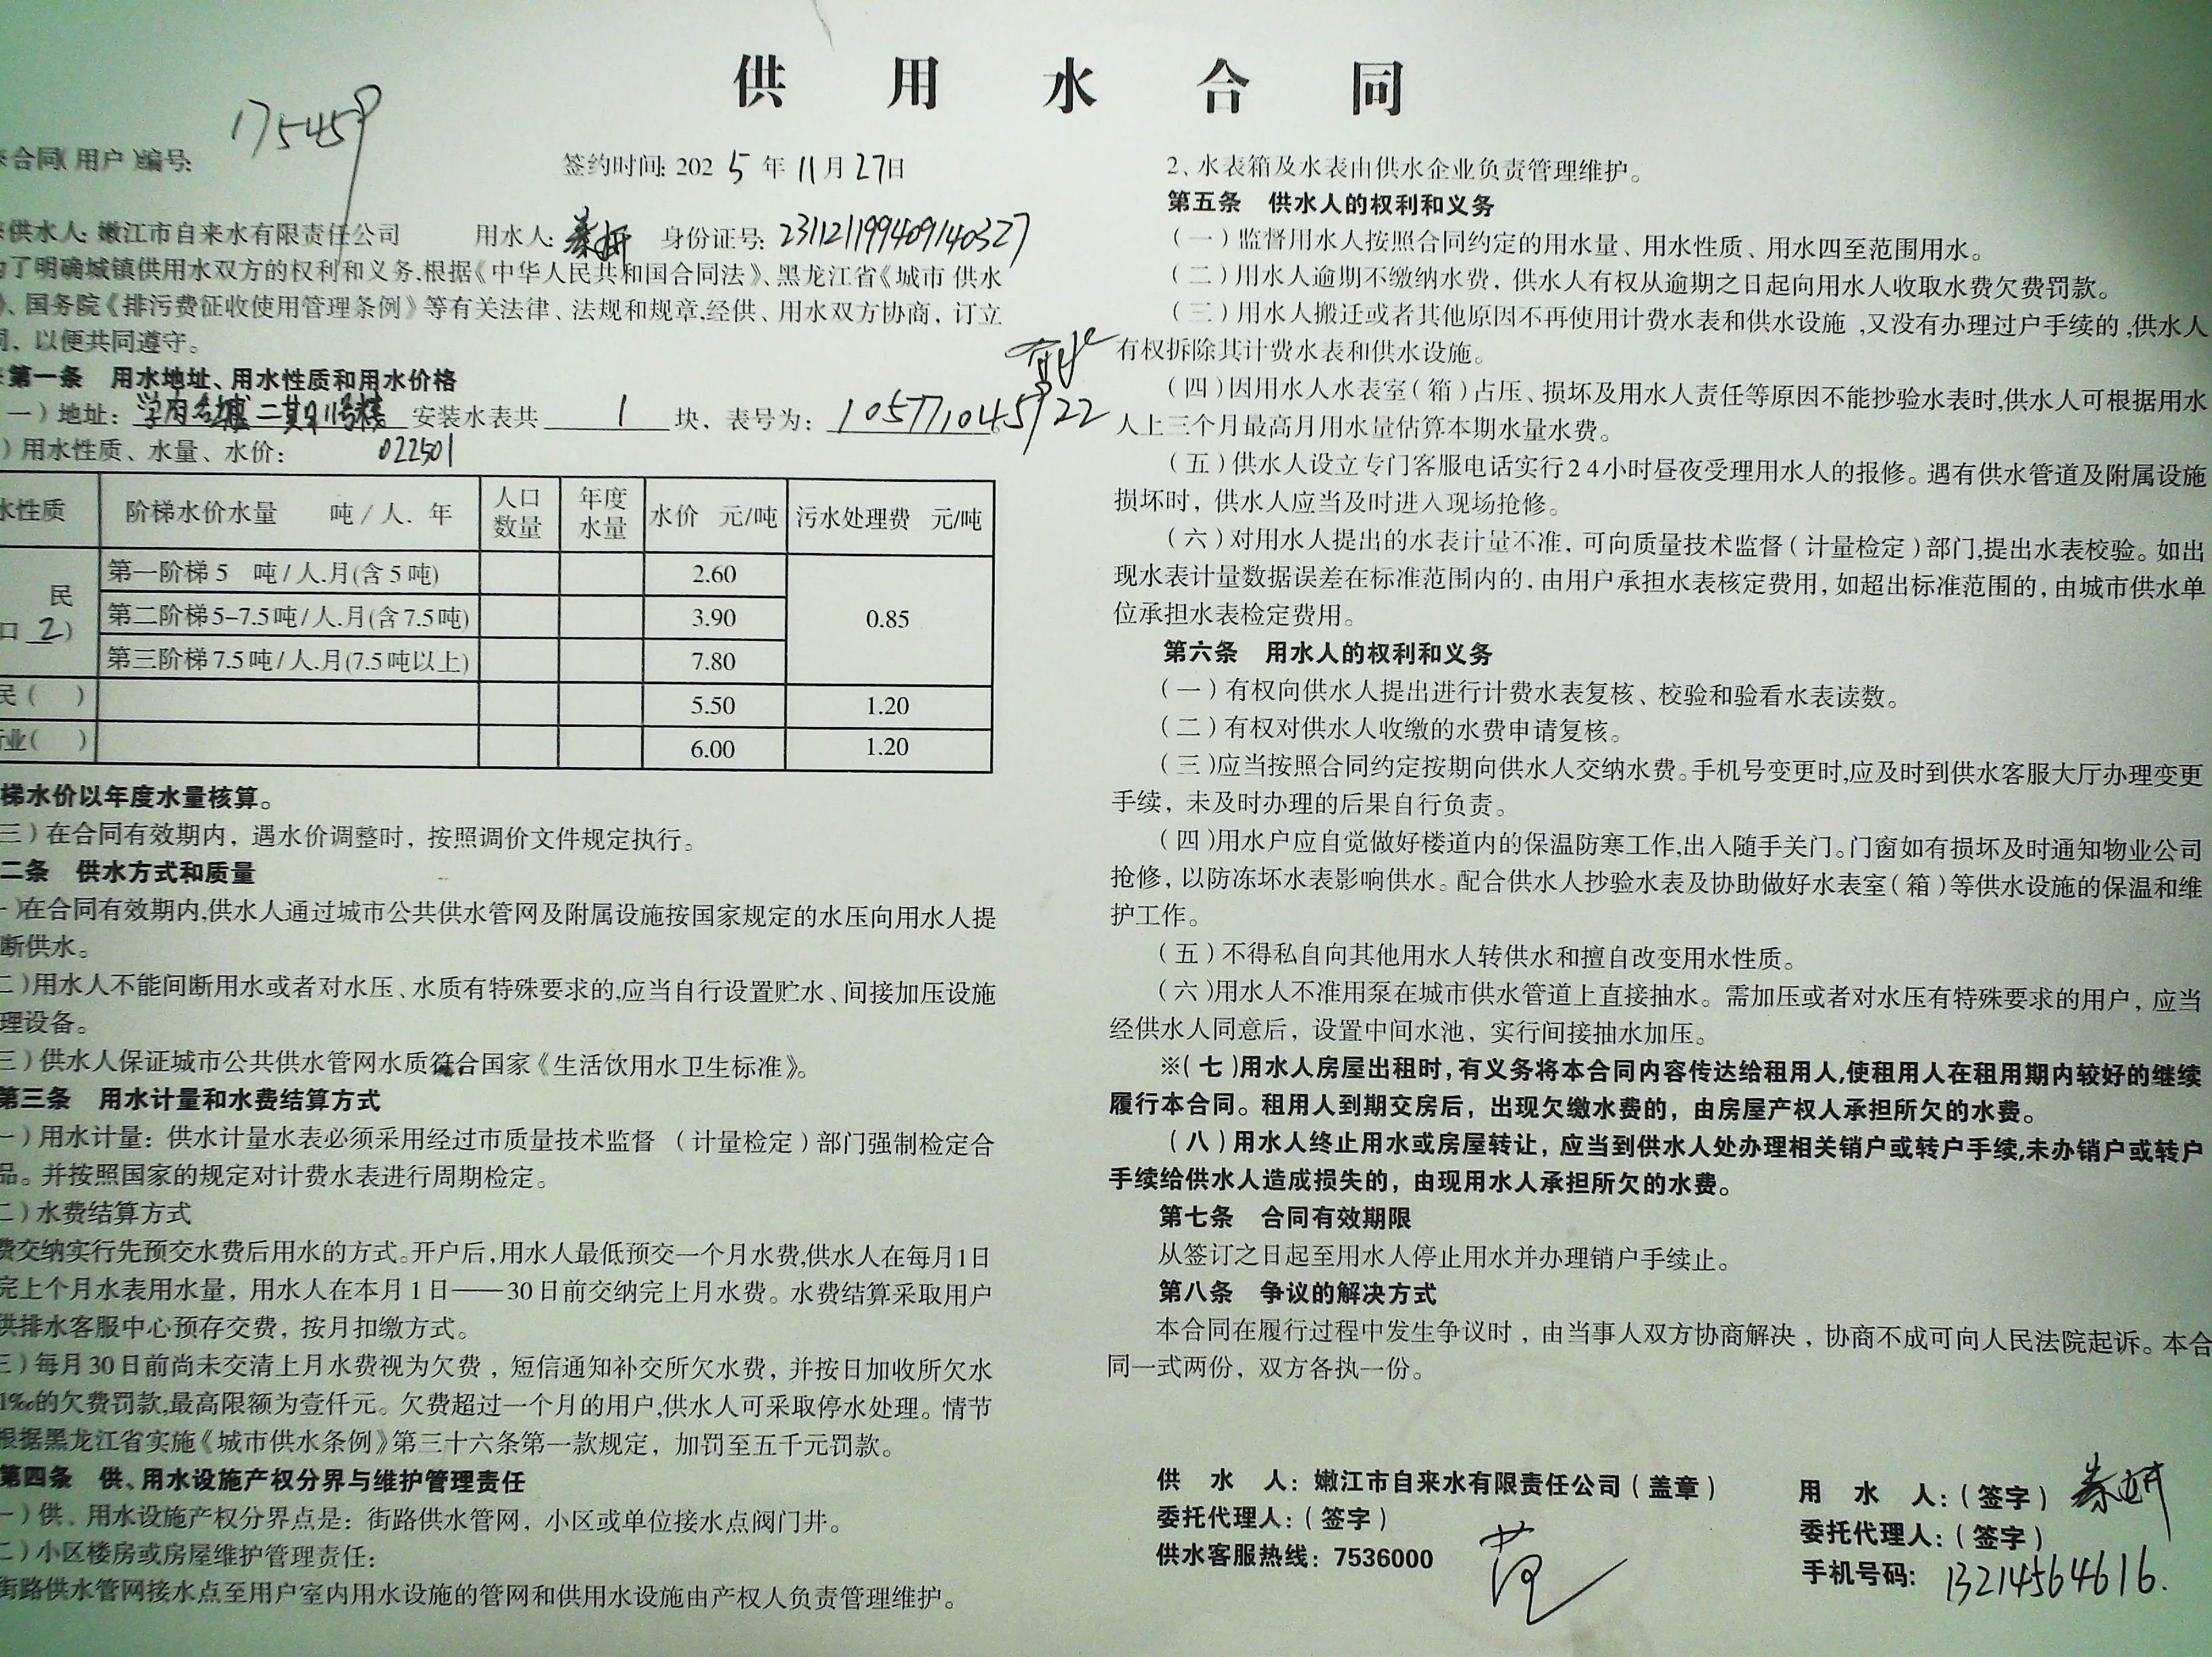 供用水合同
合同(用户)编号: 175459
签约时间: 2025年11月27日
供水人: 嫩江市自来水有限责任公司 用水人: 身份证号: 231121199409140327
了明确城镇供用水双方的权利和义务,根据《中华人民共和国合同法》、黑龙江省《城市供水
》、国务院《排污费征收使用管理条例》等有关法律、法规和规章,经供、用水双方协商，订立
同，以便共同遵守。
第一条 用水地址、用水性质和用水价格
一）地址: 学府名城二期11号楼 安装水表共 1 块，表号为: 105771045922
022501
）用水性质、水量、水价:
水性质 阶梯水价水量 吨/人.年 人口数量 年度水量 水价 元/吨 污水处理费 元/吨
民 第一阶梯5 吨/人.月(含5吨) 2.60
口 2) 第二阶梯5-7.5吨/人.月(含7.5吨) 3.90 0.85
第三阶梯7.5吨/人.月(7.5吨以上) 7.80
民( ) 5.50 1.20
业( ) 6.00 1.20
梯水价以年度水量核算。
三）在合同有效期内，遇水价调整时，按照调价文件规定执行。
二条 供水方式和质量
一)在合同有效期内,供水人通过城市公共供水管网及附属设施按国家规定的水压向用水人提
断供水。
二)用水人不能间断用水或者对水压、水质有特殊要求的,应当自行设置贮水、间接加压设施
理设备。
三）供水人保证城市公共供水管网水质符合国家《生活饮用水卫生标准》。
第三条 用水计量和水费结算方式
一）用水计量：供水计量水表必须采用经过市质量技术监督（计量检定）部门强制检定合
品。并按照国家的规定对计费水表进行周期检定。
二）水费结算方式
费交纳实行先预交水费后用水的方式。开户后,用水人最低预交一个月水费,供水人在每月1日
完上个月水表用水量，用水人在本月1日——30日前交纳完上月水费。水费结算采取用户
供排水客服中心预存交费，按月扣缴方式。
三）每月30日前尚未交清上月水费视为欠费，短信通知补交所欠水费，并按日加收所欠水
1‰的欠费罚款,最高限额为壹仟元。欠费超过一个月的用户,供水人可采取停水处理。情节
根据黑龙江省实施《城市供水条例》第三十六条第一款规定，加罚至五千元罚款。
第四条 供、用水设施产权分界与维护管理责任
一）供、用水设施产权分界点是：街路供水管网，小区或单位接水点阀门井。
二）小区楼房或房屋维护管理责任:
街路供水管网接水点至用户室内用水设施的管网和供用水设施由产权人负责管理维护。
2、水表箱及水表由供水企业负责管理维护。
第五条 供水人的权利和义务
（一）监督用水人按照合同约定的用水量、用水性质、用水四至范围用水。
（二）用水人逾期不缴纳水费，供水人有权从逾期之日起向用水人收取水费欠费罚款。
（三）用水人搬迁或者其他原因不再使用计费水表和供水设施,又没有办理过户手续的,供水人
有权拆除其计费水表和供水设施。
（四）因用水人水表室（箱）占压、损坏及用水人责任等原因不能抄验水表时,供水人可根据用水
人上三个月最高月用水量估算本期水量水费。
（五）供水人设立专门客服电话实行24小时昼夜受理用水人的报修。遇有供水管道及附属设施
损坏时，供水人应当及时进入现场抢修。
（六）对用水人提出的水表计量不准，可向质量技术监督（计量检定）部门,提出水表校验。如出
现水表计量数据误差在标准范围内的，由用户承担水表核定费用，如超出标准范围的，由城市供水单
位承担水表检定费用。
第六条 用水人的权利和义务
（一）有权向供水人提出进行计费水表复核、校验和验看水表读数。
（二）有权对供水人收缴的水费申请复核。
（三)应当按照合同约定按期向供水人交纳水费。手机号变更时,应及时到供水客服大厅办理变更
手续，未及时办理的后果自行负责。
（四)用水户应自觉做好楼道内的保温防寒工作,出入随手关门。门窗如有损坏及时通知物业公司
抢修，以防冻坏水表影响供水。配合供水人抄验水表及协助做好水表室（箱）等供水设施的保温和维
护工作。
（五）不得私自向其他用水人转供水和擅自改变用水性质。
（六)用水人不准用泵在城市供水管道上直接抽水。需加压或者对水压有特殊要求的用户，应当
经供水人同意后，设置中间水池，实行间接抽水加压。
※（七)用水人房屋出租时,有义务将本合同内容传达给租用人,使租用人在租用期内较好的继续
履行本合同。租用人到期交房后，出现欠缴水费的，由房屋产权人承担所欠的水费。
（八）用水人终止用水或房屋转让，应当到供水人处办理相关销户或转户手续,未办销户或转户
手续给供水人造成损失的，由现用水人承担所欠的水费。
第七条 合同有效期限
从签订之日起至用水人停止用水并办理销户手续止。
第八条 争议的解决方式
本合同在履行过程中发生争议时，由当事人双方协商解决，协商不成可向人民法院起诉。本合
同一式两份，双方各执一份。
供水人：嫩江市自来水有限责任公司（盖章）
委托代理人：（签字）
供水客服热线：7536000
用水人：（签字）
委托代理人：（签字）
手机号码: 13214564616.